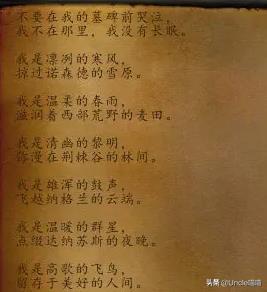 不要在我的墓碑前哭泣，
我不在那里，我没有长眠。
我是凛冽的寒风，
掠过诺森德的雪原。
我是温柔的春雨，
滋润着西部荒野的麦田。
我是清幽的黎明，
弥漫在荆棘谷的林间。
我是雄浑的鼓声，
飞越纳格兰的云端。
我是温暖的群星，
点缀达纳苏斯的夜晚。
我是高歌的飞鸟，
留存于美好的人间。
头条 @Uncle喵喵